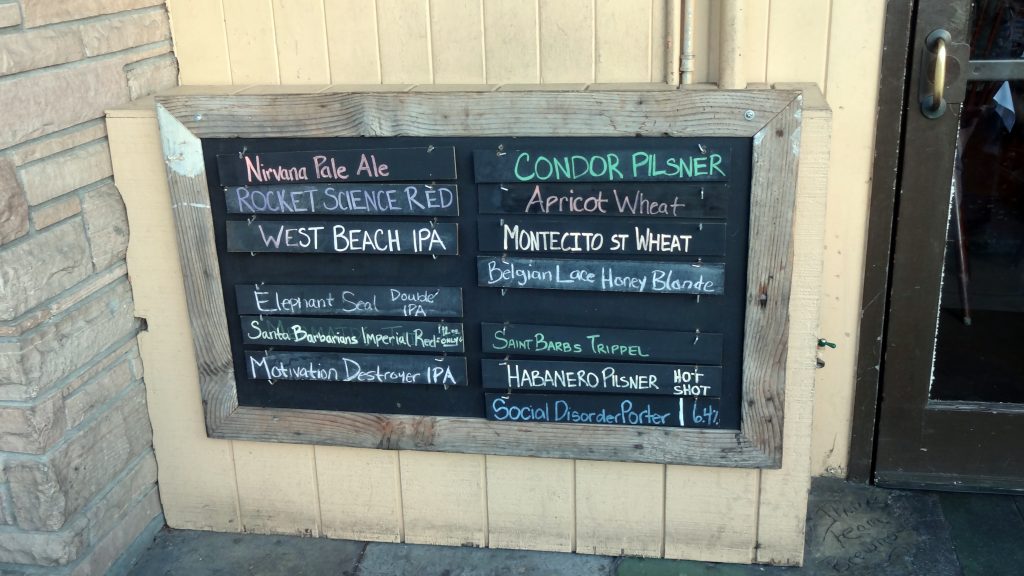 Nirvana Pale Ale
ROCKET SCIENCE RED
WEST BEACH IPA
Elephant Seal Double IPA
Santa Barbarians Imperial Red
Motivation Destroyer IPA
CONDOR PILSNER
Apricot Wheat
MONTECITO ST WHEAT
Belgian Lace Honey Blonde
SAINT BARBS TRIPPEL
HABANERO PILSNER HOT SHOT
Social Disorder Porter | 6.4%